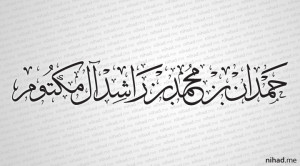 حمدان بن محمد بن راشد آل مكتوم
nihad.me